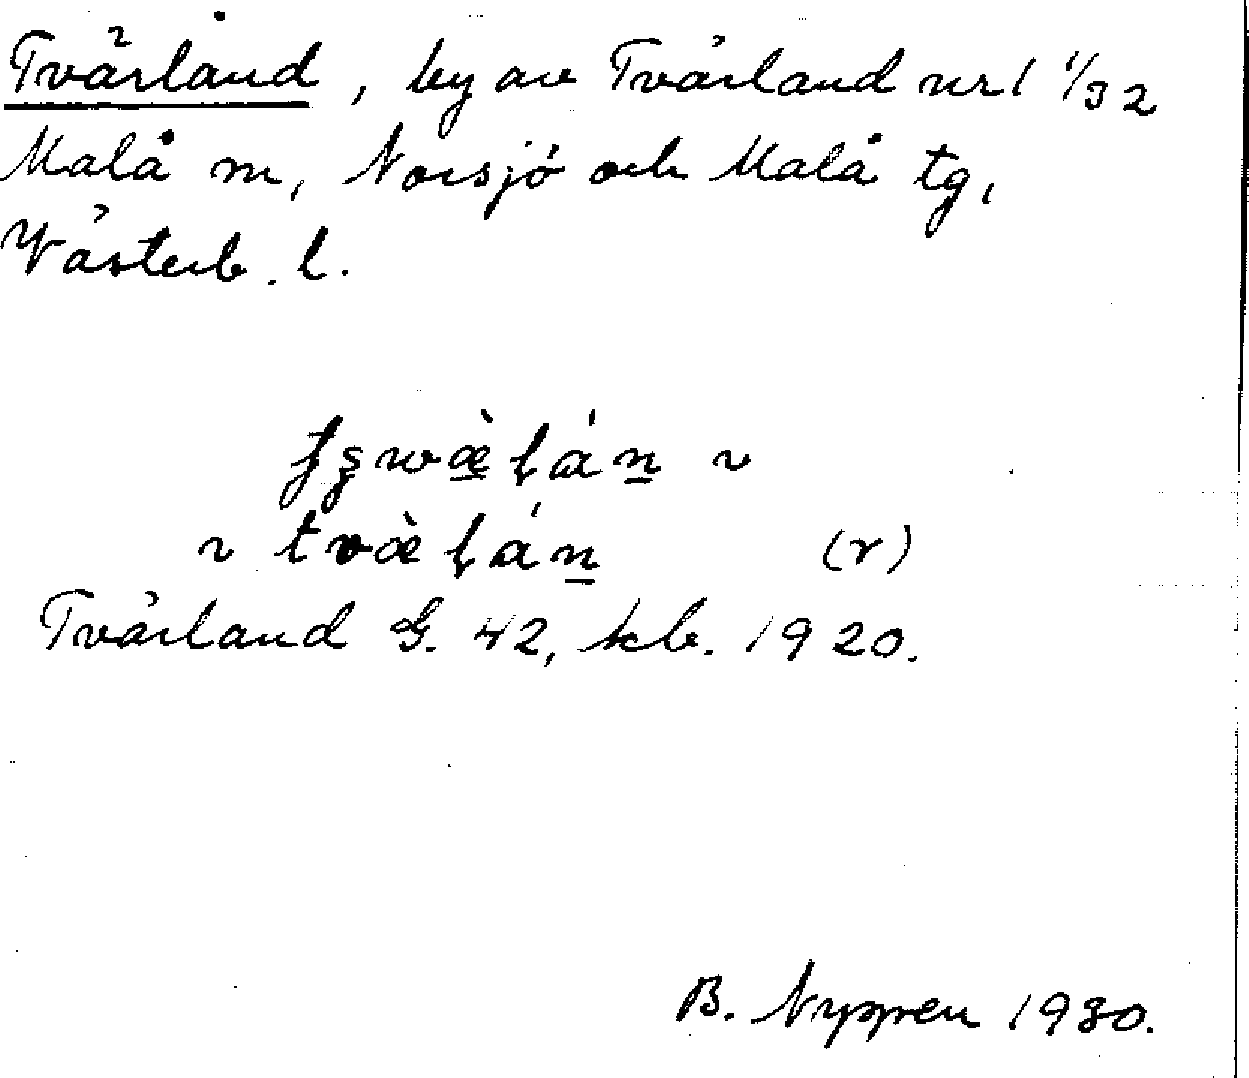 Tvärland, by av Tvärland nr 1 1/32
Malå sn, Norsjö och Malå tg,
Västerb. l.
~
~ tvæ̀ḷáṉ (r)
Tvärland G. 42, kb. 1920.
B. Nyppen 1930.